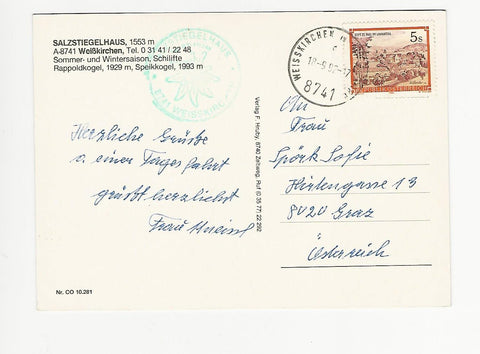 SALZSTIEGELHAUS, 1553 m
A-8741 Weißkirchen, Tel. 0 31 41 / 22 48
Sommer- und Wintersaison, Schilifte
Rappoldkogel, 1929 m, Speikkogel, 1993 m
8741 WEISSKIRCHEN
Herzliche Grüße
v. einer Tagesfahrt
grüßt herzlichst
Frau
Nr. CO 10.281
Verlag F. Hruby, 8740 Zeltweg, Ruf (0 35 77) 22 292
WEISSKIRCHEN
8741
5s
REPUBLIK ÖSTERREICH
An
Frau
Spörk Sofie
Hirtengasse 13
8020 Graz
Österreich